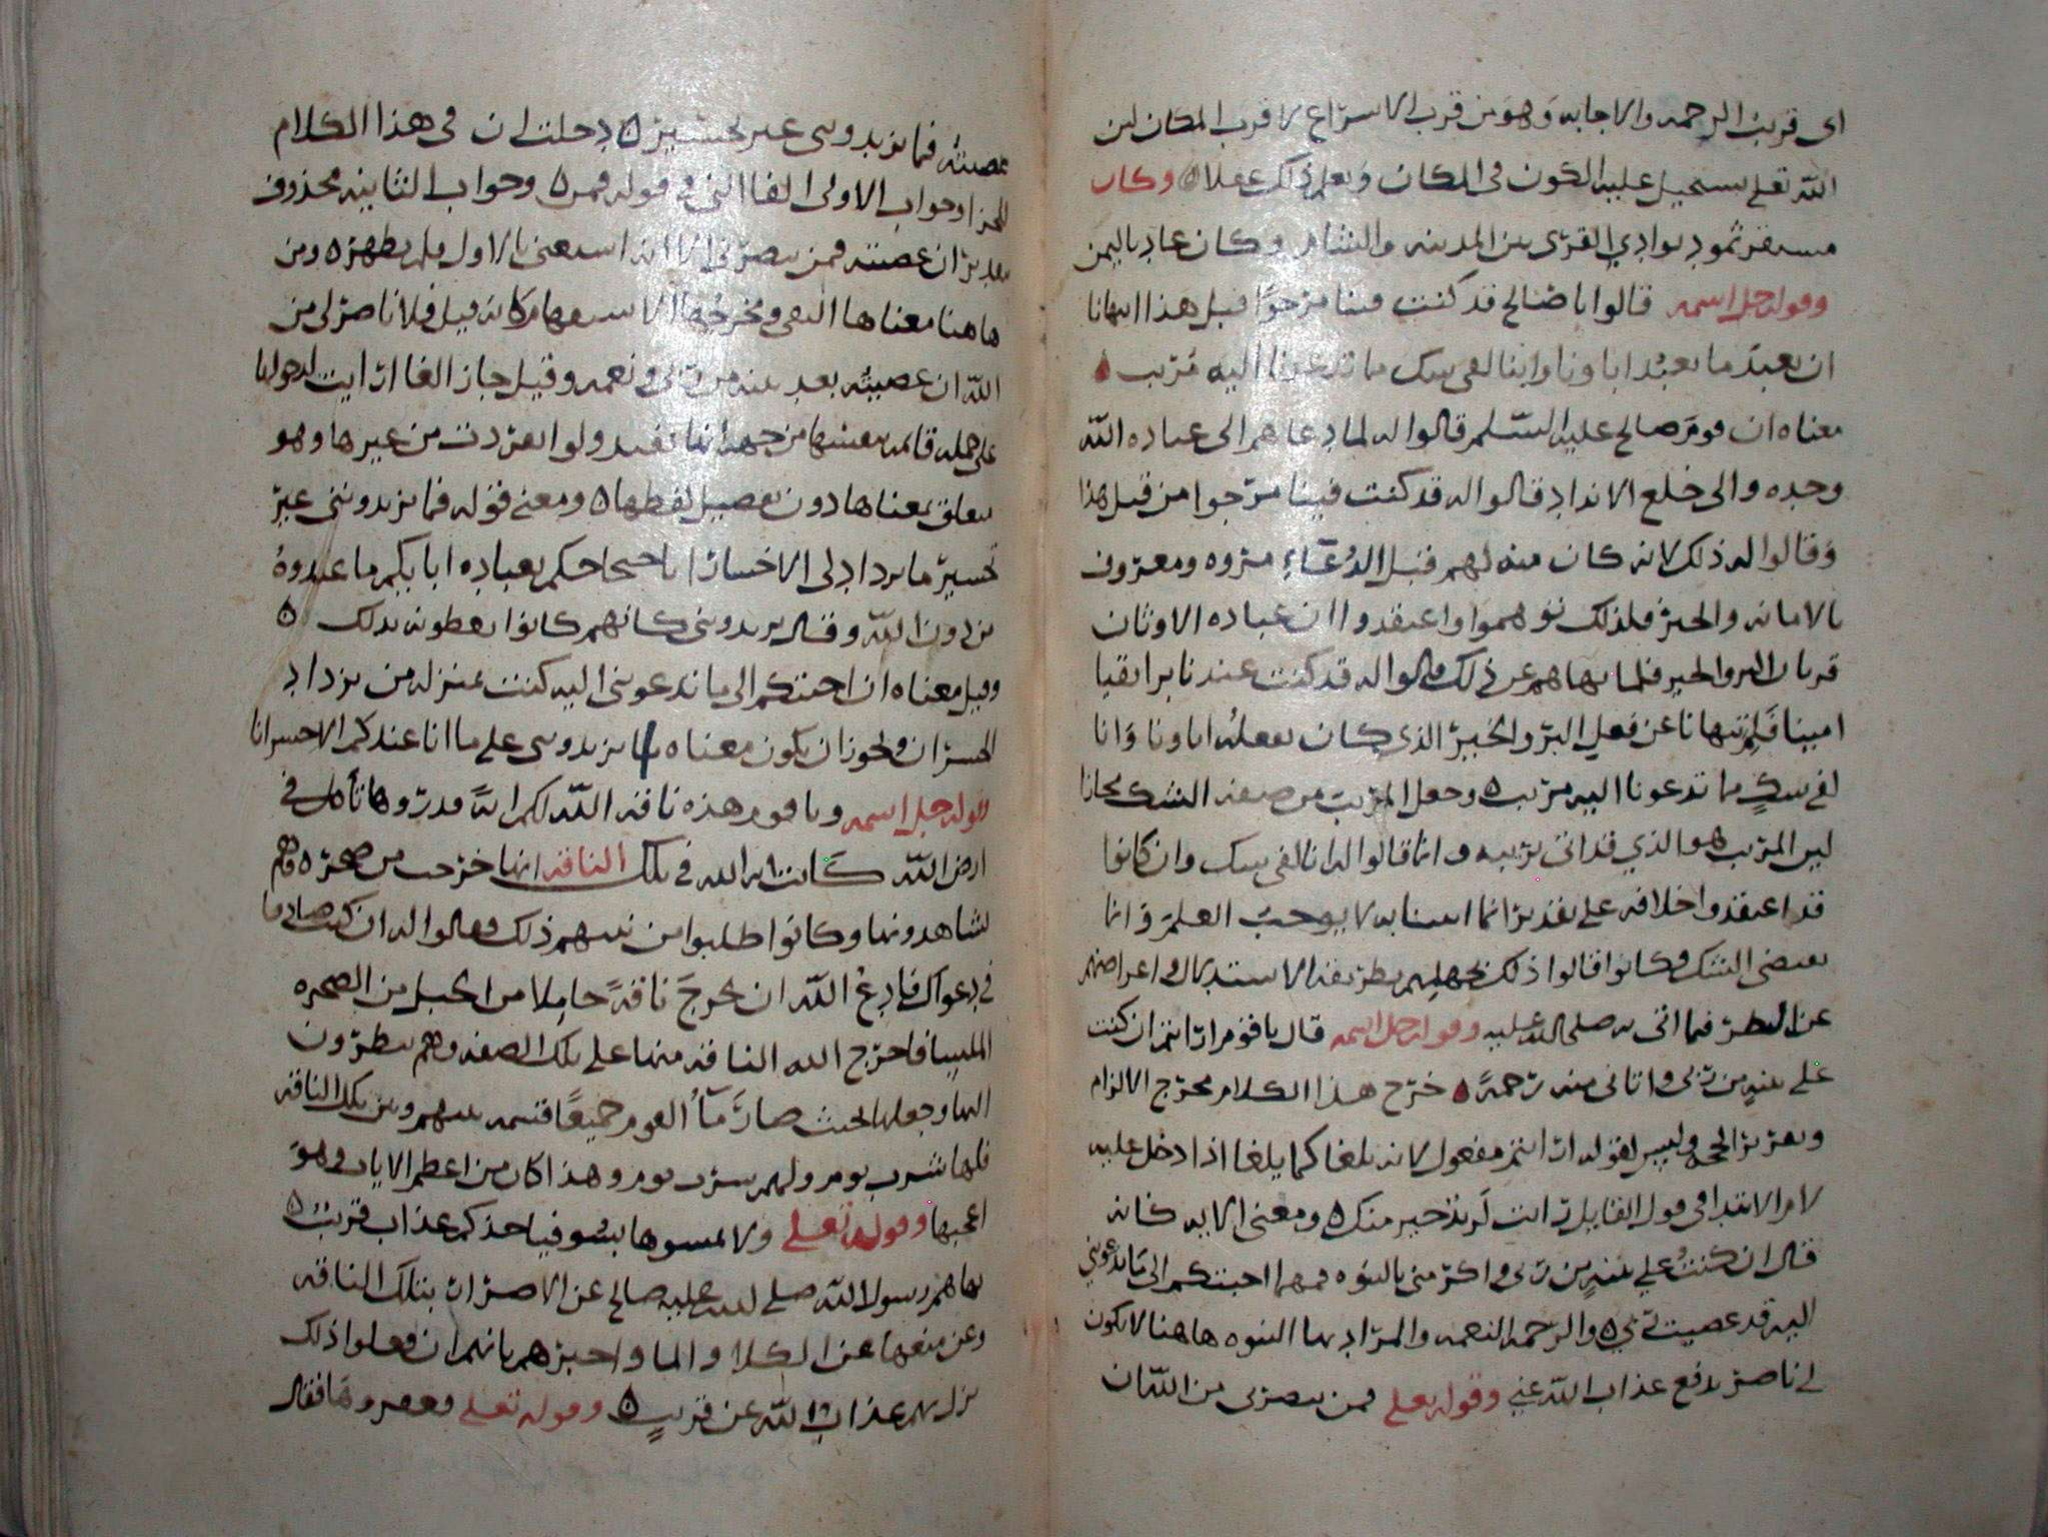 اى قريب الرحمه والاجابه وهو من قرب الاسراع لا قرب المكان لان
الله تعلى يستحيل عليه الكون فى المكان ويعلم ذلك عقلا وكان
مستقر ثمود بوادي القرى بين المدينه والشام وكان عاد باليمن
وقوله جل اسمه قالوا يا صالح قد كنت فينا مرجوا قبل هذا اتنهانا
ان نعبد ما يعبد اباونا واننا لفي شك مما تدعونا اليه مريب
معناه ان قوم صالح عليه السلم قالوا له لما دعاهم الى عباده الله
وحده والى خلع الانداد قالوا له قد كنت فينا مرجوا من قبل هذا
وقالوا له ذلك لانه كان منه لهم قبل الدعاء مروه ومعروف
بالامانه والخير فلذلك توهموا واعتقدوا ان عباده الاوثان
قربان البر والخير فلما نهاهم عن ذلك قالوا له قد كنت عندنا برا تقيا
امينا فلم تنهانا عن فعل البر والخير الذي كان يفعله اباونا وانا
لفي شك مما تدعونا اليه مريب وجعل المريب من صفه الشك مجازا
لان المريب هو الذي قد اتى بريبه وانما قالوا له انا لفى شك وان كانوا
قد اعتقدوا خلافه على تقدير انما اتيتنا به لا يوجب العلم وانما
يقتضى الشك وكانوا قالوا ذلك لجهلهم بطريقه الاستدلال واعراضهم
عن النظر فيما اتى به صلى الله عليه وقوله جل اسمه قال يا قوم ارايتم ان كنت
على بينه من ربى واتانى منه رحمة خرج هذا الكلام مخرج الالزام
وتعزيز الحجه وليس لقوله ارايتم مفعول لانه يلغا كما يلغا اذا دخل عليه
لام الابتدا فى قول القايل رايت لزيد خير منك ومعنى الايه كانه
قال ان كنت على بينه من ربى واكرمنى بالنبوه فمهما اجبتكم الى ما تدعونني
اليه قد عصيت ربي والرحمه النعمه والمراد بها النبوه هاهنا لا يكون
لي ناصر يدفع عذاب الله عني وقوله تعلى فمن ينصرنى من الله ان
عصيته فما تزيدوننى غير تخسير دخلت ان فى هذا الكلام
للجزا وجواب الاولى الفا التى فى قوله فمن وجواب الثانيه محذوف
تقديره ان عصيته فمن ينصرنى الا انه استغنى بالاول فلم يظهره ومن
هاهنا معناها النفى ومخرجها الاستفهام كانه قيل فلا ناصر لى من
الله ان عصيته بعد بينه من ربى ونعمه وقيل جاز الغا ارايت لدخولها
على جمله قائمه بنفسها من جهه انها تفيد ولو انفردت من غيرها وهو
يتعلق بمعناها دون تفصيل لفظها ومعنى قوله فما تزيدوننى غير
تخسير ما نزداد لى الا خسارا باحتجاجكم بعباده ابايكم ما عبدوه
من دون الله وقال يزيدوننى كانهم كانوا يعطونه بذلك
وقيل معناه ان اجبتكم الى ما تدعونى اليه كنت بمنزله من يزداد
الخسران ويجوز ان يكون معناه ما تزيدوننى على ما انا عندكم الا خسرانا
قوله جل اسمه ويا قوم هذه ناقه الله لكم اية فذروها تاكل فى
ارض الله كانت ايه الله فى تلك الناقه انها خرجت من صخره وهم
يشاهدونها وكانوا طلبوا من نبيهم ذلك وقالوا له ان كنت صادقا
فى دعواك فادع الله ان يخرج ناقة حاملا من الجبل من الصخره
الملسا فاخرج الله الناقه منها على تلك الصفه وهم ينظرون
اليها وجعلها بحيث صار ما القوم جميعا قسمه بينهم وبين تلك الناقه
فلها شرب يوم ولهم شرب يوم وهذا كان من اعظم الايات وهو
اعجبها وقوله تعلى ولا تمسوها بسو فياخذكم عذاب قريب
نهاهم رسول الله صلى الله عليه صالح عن الاضرار بتلك الناقه
وعن منعها عن الكلا والما واخبرهم بانهم ان فعلوا ذلك
نزل بهم عذاب الله عن قريب وقوله تعلى فعقروها فقال